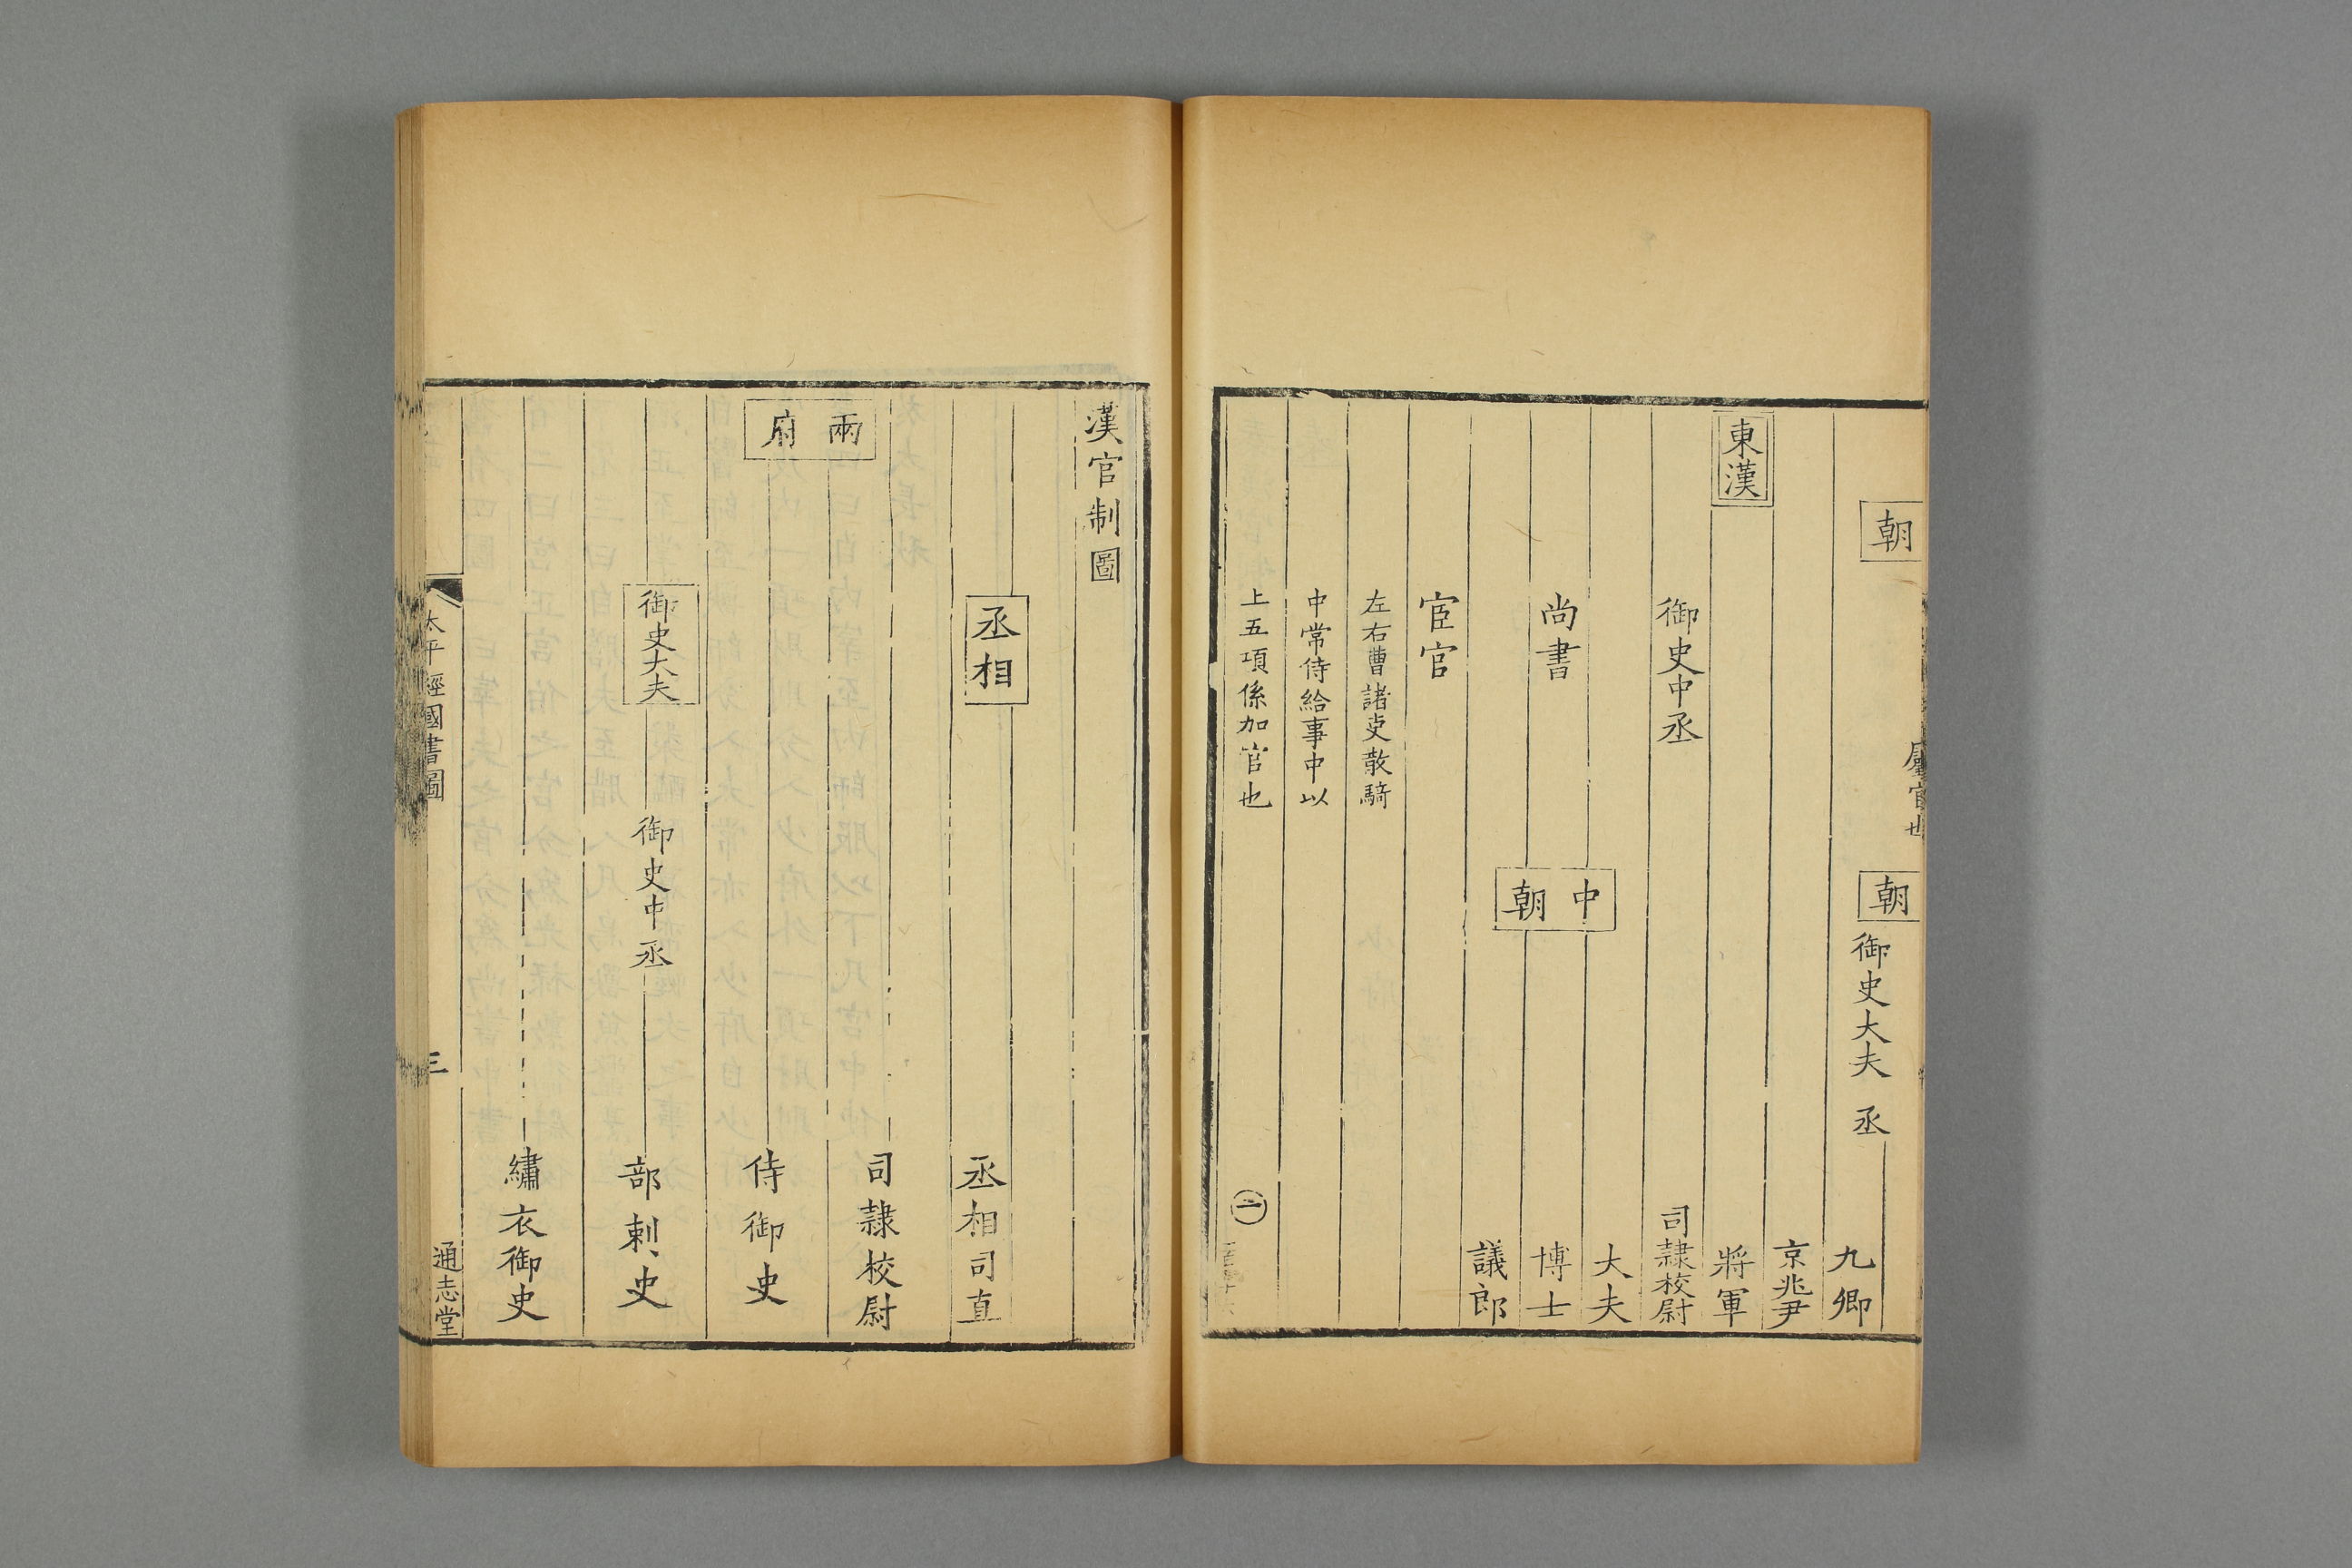 朝
官也
朝
御史大夫 丞
九卿
京兆尹
東漢
將軍
御史中丞
司隷校尉
尚書
中朝
大夫
博士
議郎
宦官
左右曹諸吏散騎
中常侍給事中以
上五項係加官也
二
漢官制圖
丞相
丞相司直
兩府
司隷校尉
侍御史
御史大夫
御史中丞
部刺史
繡衣御史
太平經國書圖
三
通志堂